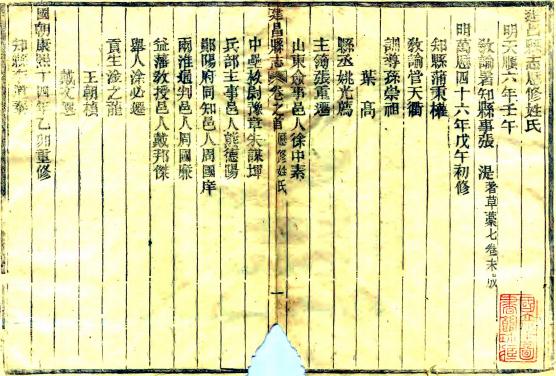 建昌縣志歷修姓氏
明天順六年壬午
教諭署知縣事張 湜著草藁七卷未成
明萬曆四十六年戊午初修
知縣蒲秉權
教諭官天衢
訓導孫崇祖
葉 高
縣丞姚光
主簿張重
山東僉事邑人徐中素
建昌縣志 卷之首 歷修姓氏 一
中壘校尉豫章朱謀㙔
兵部主事邑人熊德陽
鄖陽府同知邑人周國
兩淮運判邑人周國
益藩教授邑人戴邦傑
舉人涂必
貢生淩之龍
王朝楨
戴文
國朝康熙十四年乙卯重修
知縣